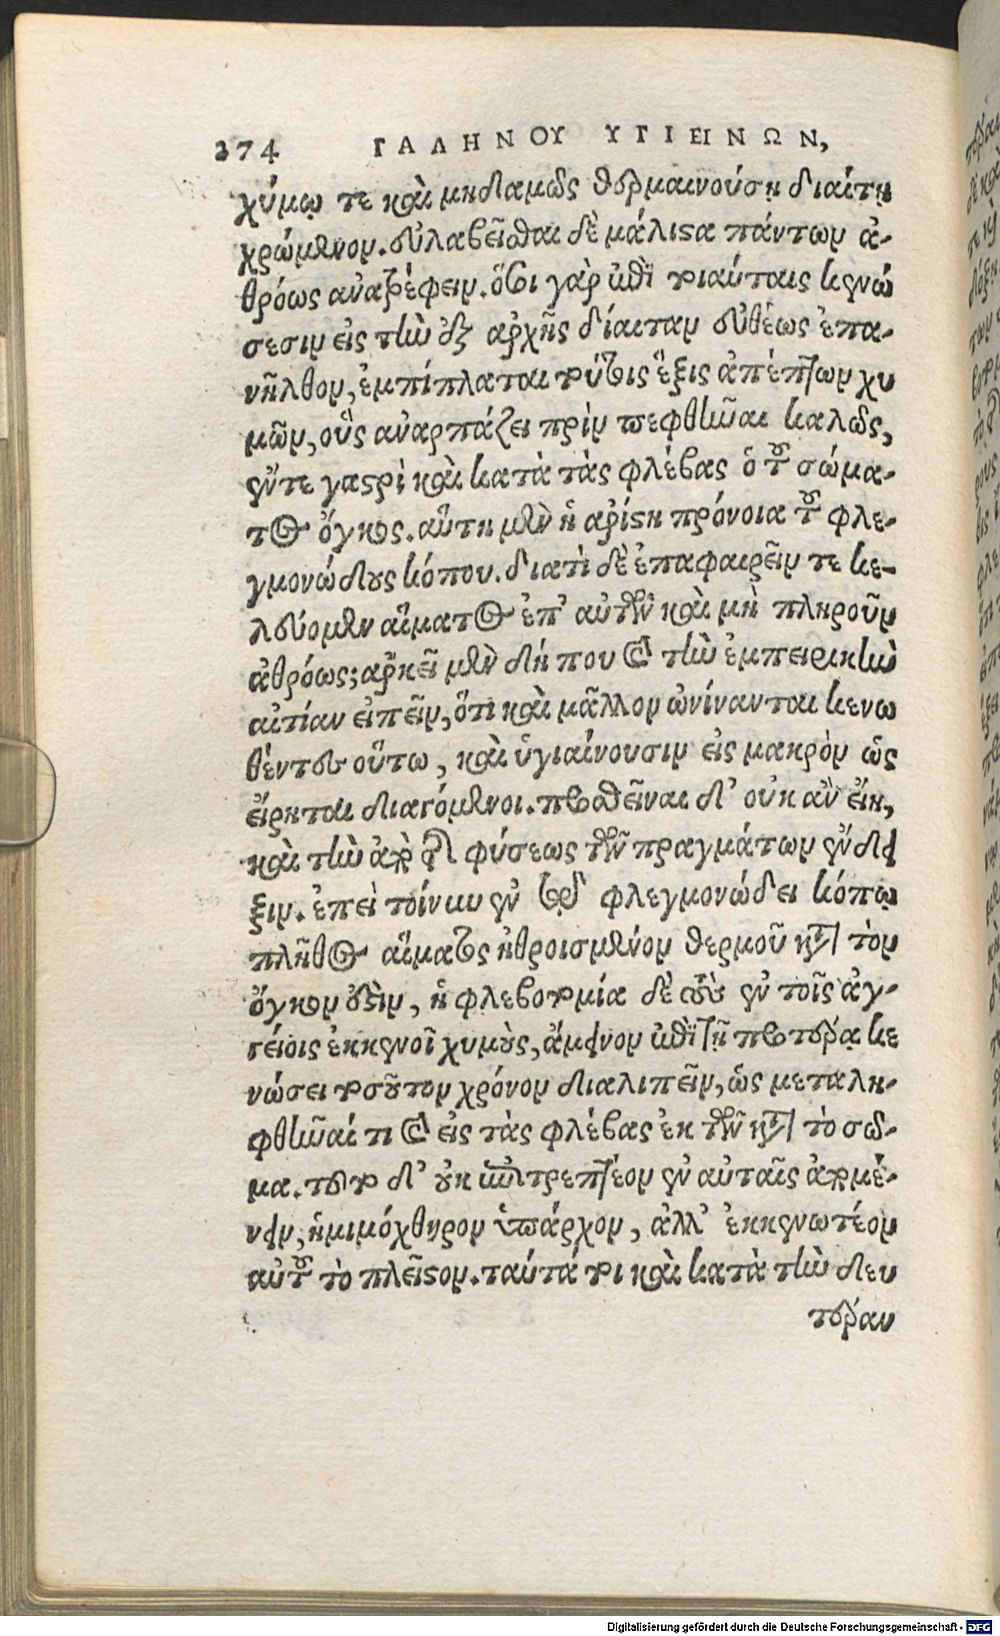 274 ΓΑΛΗΝΟΥ ΥΓΙΕΙΝΩΝ,
χύμῳ τε καὶ μηδαμῶς θερμαινούσῃ διαίτῃ
χρώμενον. εὐλαβεῖσθαι δὲ μάλιστα πάντων ἀ-
θρόως ἀνατρέφειν. ὅσοι γὰρ ἐπὶ τοιαύταις κενώ
σεσιν εἰς τὴν ἐξ ἀρχῆς δίαιταν εὐθέως ἐπα-
νῆλθον, ἐμπίπλαται τούτοις ἕξις ἀπέπτων χυ
μῶν, οὓς ἀναρπάζει πρὶν πεφθῆναι καλῶς,
ἔν τε γαστρὶ καὶ κατὰ τὰς φλέβας ὁ τοῦ σώμα-
τος ὄγκος. αὕτη μὲν ἡ ἀρίστη πρόνοια τοῦ φλε-
γμονώδους κόπου. διατὶ δὲ ἐπαφαιρεῖν τε κε-
λεύομεν αἵματος ἐπ' αὐτῶν καὶ μὴ πληροῦν
ἀθρόως; ἀρκεῖ μὲν δή που καὶ τὴν ἐμπειρικὴν
αἰτίαν εἰπεῖν, ὅτι καὶ μᾶλλον ὠνίνανται κενω
θέντες οὕτω, καὶ ὑγιαίνουσιν εἰς μακρὸν ὡς
εἴρηται διαγόμενοι. προσθεῖναι δ' οὐκ ἂν εἴη,
καὶ τὴν ἀπὸ τῆς φύσεως τῶν πραγμάτων ἔνδει
ξιν. ἐπεὶ τοίνυν ἐν τῷ φλεγμονώδει κόπῳ
πλῆθος αἵματος ἠθροισμένον θερμοῦ κατὰ τὸν
ὄγκον ἐστὶν, ἡ φλεβοτομία δὲ τοὺς ἐν τοῖς ἀγ-
γείοις ἐκκενοῖ χυμοὺς, ἄμεινον ἐπὶ τῇ προτέρᾳ κε
νώσει τοσοῦτον χρόνον διαλιπεῖν, ὡς μεταλη-
φθῆναί τι καὶ εἰς τὰς φλέβας ἐκ τῶν κατὰ τὸ σῶ-
μα. τοῦτο δ' οὐκ ἐπιτρεπτέον ἐν αὐταῖς ἀπομέ-
νειν, ἡμιμόχθηρον ὑπάρχον, ἀλλ' ἐκκενωτέον
αὐτοῦ τὸ πλεῖστον. ταύτά τοι καὶ κατὰ τὴν δευ
τέραν
Digitalisierung gefördert durch die Deutsche Forschungsgemeinschaft - DFG